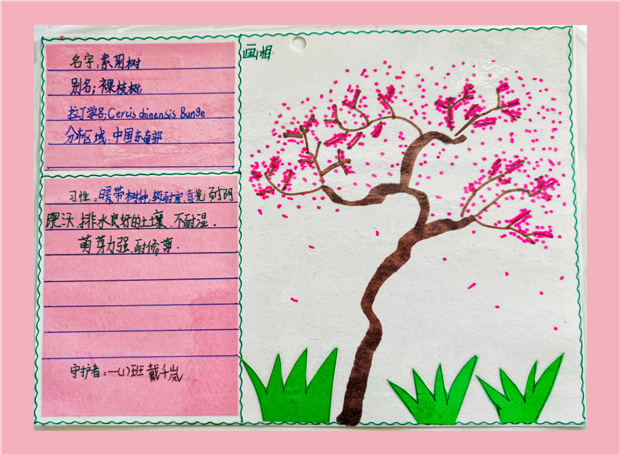 名字:紫荆树
别名:裸枝树
拉丁学名:Cercis chinensis Bunge
分布区域:中国东南部
习性:暖带树种,较耐寒,喜光
肥沃.排水良好的土壤.不耐湿.
萌芽力强.耐修剪.
守护者:一(1)班 戴千岚
画相